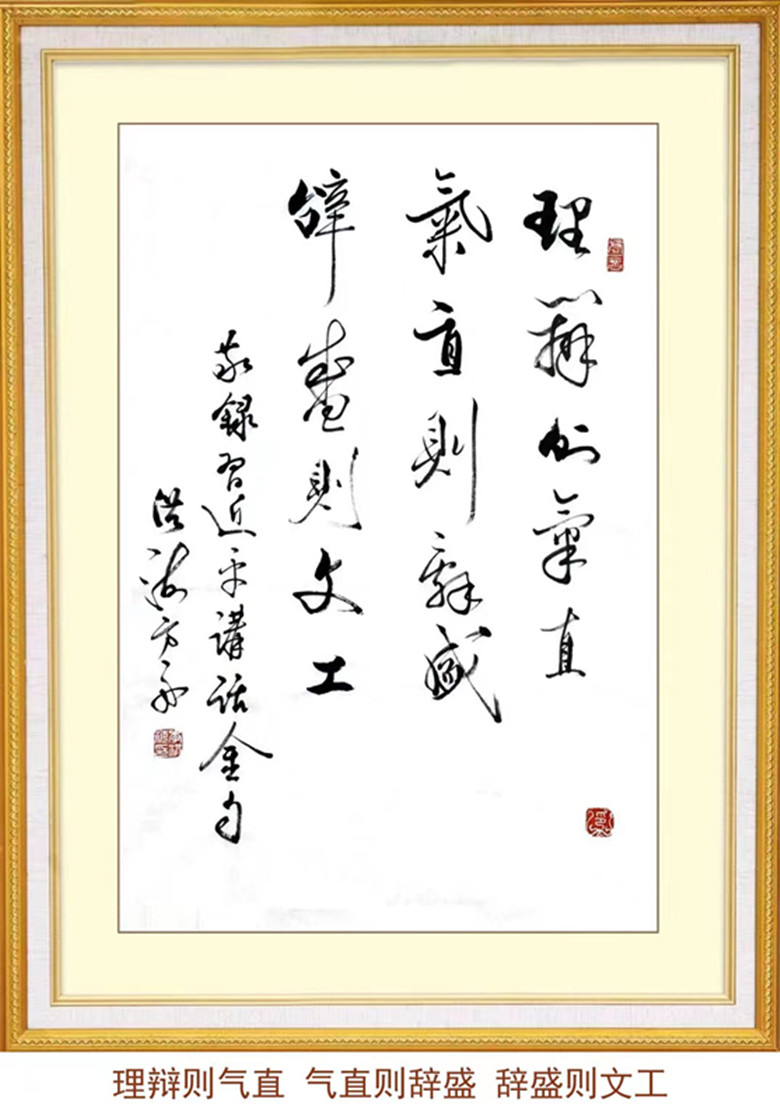 理辩则氣直
氣直則辭盛
辭盛則文工
敬録習近平講話金句
洪海方永
理辩则气直 气直则辞盛 辞盛则文工